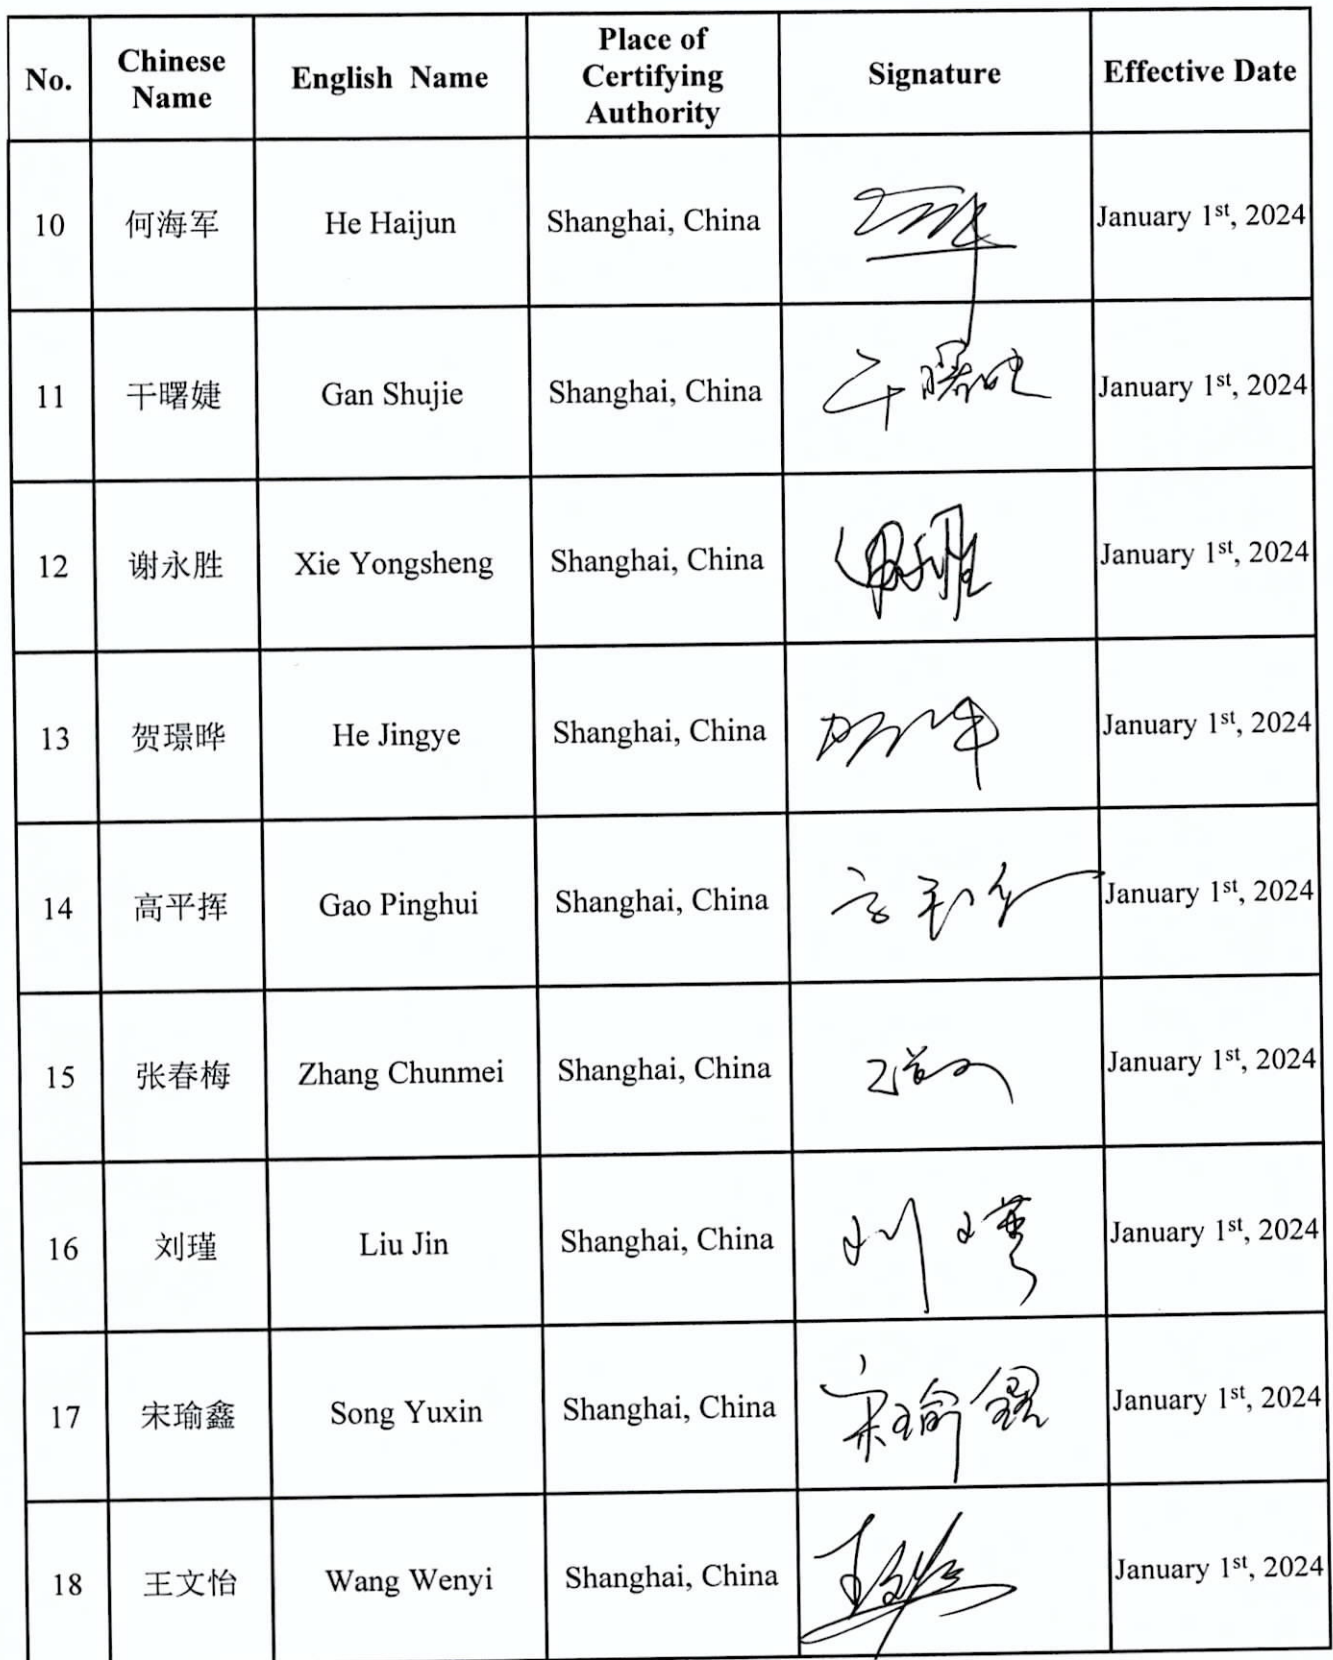 No. Chinese Name English Name Place of Certifying Authority Signature Effective Date
10 何海军 He Haijun Shanghai, China January 1st, 2024
11 干曙婕 Gan Shujie Shanghai, China 干曙婕 January 1st, 2024
12 谢永胜 Xie Yongsheng Shanghai, China January 1st, 2024
13 贺璟晔 He Jingye Shanghai, China January 1st, 2024
14 高平挥 Gao Pinghui Shanghai, China January 1st, 2024
15 张春梅 Zhang Chunmei Shanghai, China January 1st, 2024
16 刘瑾 Liu Jin Shanghai, China 刘瑾 January 1st, 2024
17 宋瑜鑫 Song Yuxin Shanghai, China 宋瑜鑫 January 1st, 2024
18 王文怡 Wang Wenyi Shanghai, China January 1st, 2024